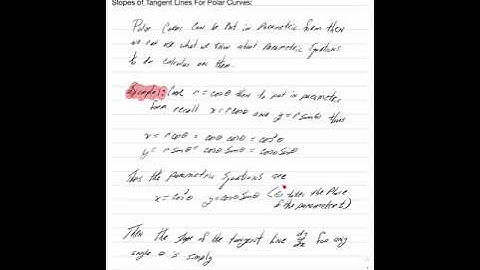 Slopes of Tangent Lines For Polar Curves:
Polar Curves can be put in parametric form then
we can use what we know about parametric equations
to do calculus on them.
Example: Look r = cosθ then to put in parametric
form recall x = r cosθ and y = r sinθ thus
x = r cosθ = cosθ cosθ = cos²θ
y = r sinθ = cosθ sinθ = cosθ sinθ
Thus the parametric equations are
x = cos²θ y = cosθ sinθ (θ takes the place
of the parameter t)
Then the slope of the tangent line dy/dx for any
angle θ is simply